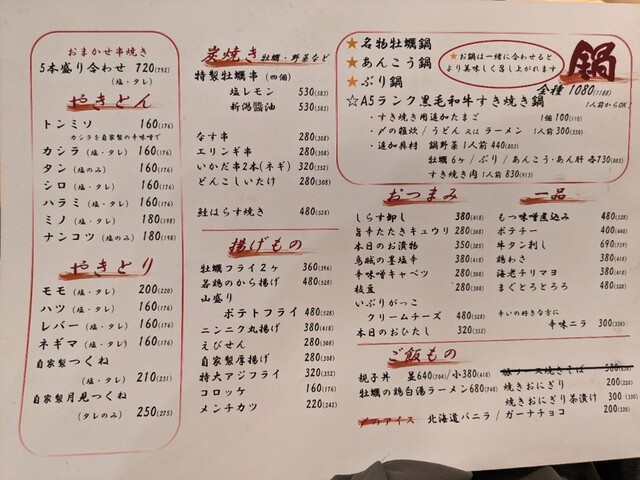 おまかせ串焼き
5本盛り合わせ 720(792)
(塩・タレ)
やきとん
トンミソ 160(176)
カシラを自家製の辛味噌で
カシラ(塩・タレ) 160(176)
タン(塩のみ) 160(176)
シロ(塩・タレ) 160(176)
ハラミ(塩・タレ) 160(176)
ミノ(塩・タレ) 180(198)
ナンコツ(塩のみ) 180(198)
やきとり
モモ(塩・タレ) 200(220)
ハツ(塩・タレ) 160(176)
レバー(塩・タレ) 160(176)
ネギマ(塩・タレ) 160(176)
自家製つくね
(塩・タレ) 210(231)
自家製月見つくね
(タレのみ) 250(275)
炭焼き 牡蠣・野菜など
特製牡蠣串(四個)
塩レモン 530(583)
新潟醬油 530(583)
なす串 280(308)
エリンギ串 280(308)
いかだ串2本(ネギ) 320(352)
どんこしいたけ 280(308)
鮭はらす焼き 480(528)
揚げもの
牡蠣フライ2ヶ 360(396)
若鶏のから揚げ 480(528)
山盛り
ポテトフライ 480(528)
ニンニク丸揚げ 380(418)
えびせん 280(308)
自家製厚揚げ 280(308)
特大アジフライ 320(352)
コロッケ 160(176)
メンチカツ 220(242)
鍋
★名物牡蠣鍋
★あんこう鍋
★ぶり鍋
★お鍋は一緒に合わせると
より美味しく召し上がれます
全種 1080(1188)
1人前からOK
☆A5ランク黒毛和牛すき焼き鍋
・すき焼き用追加たまご 1個100(110)
・〆の雑炊/うどん又はラーメン 1人前300(330)
・追加具材 鍋野菜1人前440(803)
牡蠣6ヶ/ぶり/あんこう・あん肝 各730(803)
すき焼き肉1人前830(913)
おつまみ
しらす卸し 380(418)
旨辛たたきキュウリ 280(308)
本日のお漬物 350(385)
烏賊の墨塩辛 380(418)
辛味噌キャベツ 280(308)
枝豆 280(308)
いぶりがっこ
クリームチーズ 480(528)
本日のおひたし 320(352)
一品
もつ味噌煮込み 480(528)
ポテチー 400(440)
牛タン刺し 690(759)
鶏わさ 380(418)
海老チリマヨ 380(418)
まぐとろとろろ 480(528)
辛いの好きな方に
辛味ニラ 300(330)
ご飯もの
親子丼 並640(704)/小380(418)
牡蠣の鶏白湯ラーメン680(748)
豚ソース焼きそば 580
焼きおにぎり 200(220)
焼きおにぎり茶漬け 300(330)
〆のアイス 北海道バニラ/ガーナチョコ 200(220)